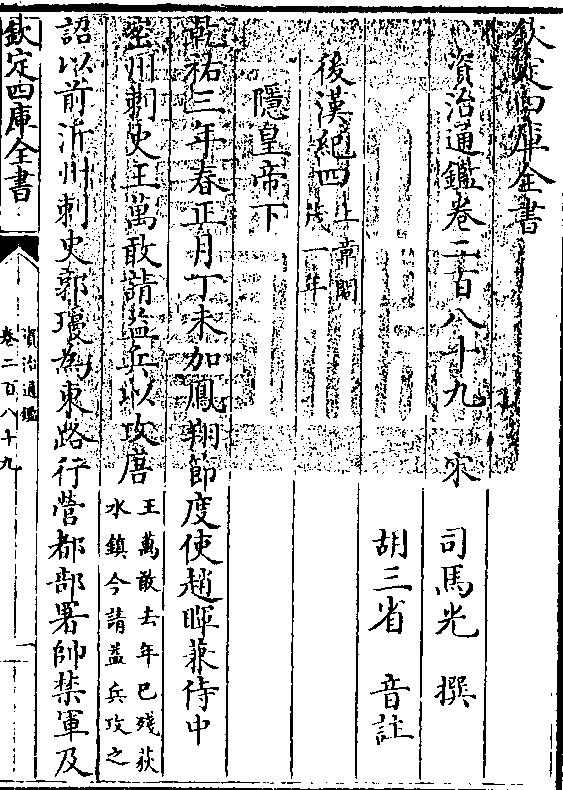 欽定四庫全書
資治通鑑卷二百八十九
宋 司馬光 撰
胡三省 音註
後漢紀四 上章閹茂一年
隱皇帝下
乾祐三年春正月丁未加鳳翔節度使趙暉兼侍中
密州刺史王萬敢請益兵以攻唐 王萬敢去年已殘荻水鎮今請益兵攻之
詔以前沂州刺史郭瓊為東路行營都部署帥禁軍及
欽定四庫全書
資治通鑑
卷二百八十九
一